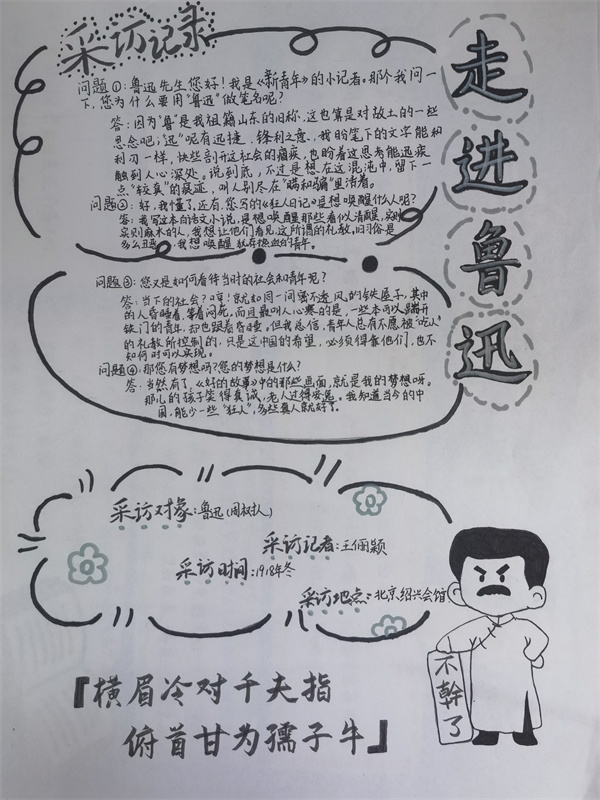 采访记录
走进鲁迅
问题①:鲁迅先生您好!我是《新青年》的小记者。那个我问一
下,您为什么要用“鲁迅”做笔名呢?
答:因为“鲁”是我祖籍山东的旧称,这也算是对故土的一些
思念吧;“迅”呢有迅捷、锋利之意,我盼笔下的文字能和
利刃一样,快些剖开这社会的痼疾,也盼着这思考能迅疾
触到人心深处。说到底,不过是想在这混沌中,留下一
点“较真”的痕迹,叫人别尽在“瞒和骗”里活着。
问题②:好,我懂了,还有,您写的《狂人日记》是想唤醒什么人呢?
答:我写这本白话文小说,是想唤醒那些看似清醒,实则
实则麻木的人,我想让他们看见,这所谓的礼教,旧习俗是
多么丑恶,我想唤醒 热血的青年。
问题③:您又是如何看待当时的社会和青年呢?
答:当下的社会?哼!就如同一间密不透风的铁屋子,其中
的人昏睡着,等着闷死,而且最叫人心寒的是,一些本可以踹开
铁门的青年,却也跟着昏睡。但我总信,青年人总有不愿被“吃人”
的礼教所控制的,只是这中国的希望,必须得靠他们,也不
知何时可以实现。
问题④:那您有梦想吗?您的梦想是什么?
答:当然有了,《好的故事》中的那些画面,就是我的梦想呀。
那儿的孩子笑得真诚,老人过得安逸。我知道当今的中
国,能少一些“狂人”,多些真人就好了。
采访对象:鲁迅(周树人)
采访记者:王俪颖
采访时间:1918年冬
采访地点:北京绍兴会馆
不幹了
『横眉冷对千夫指
俯首甘为孺子牛』